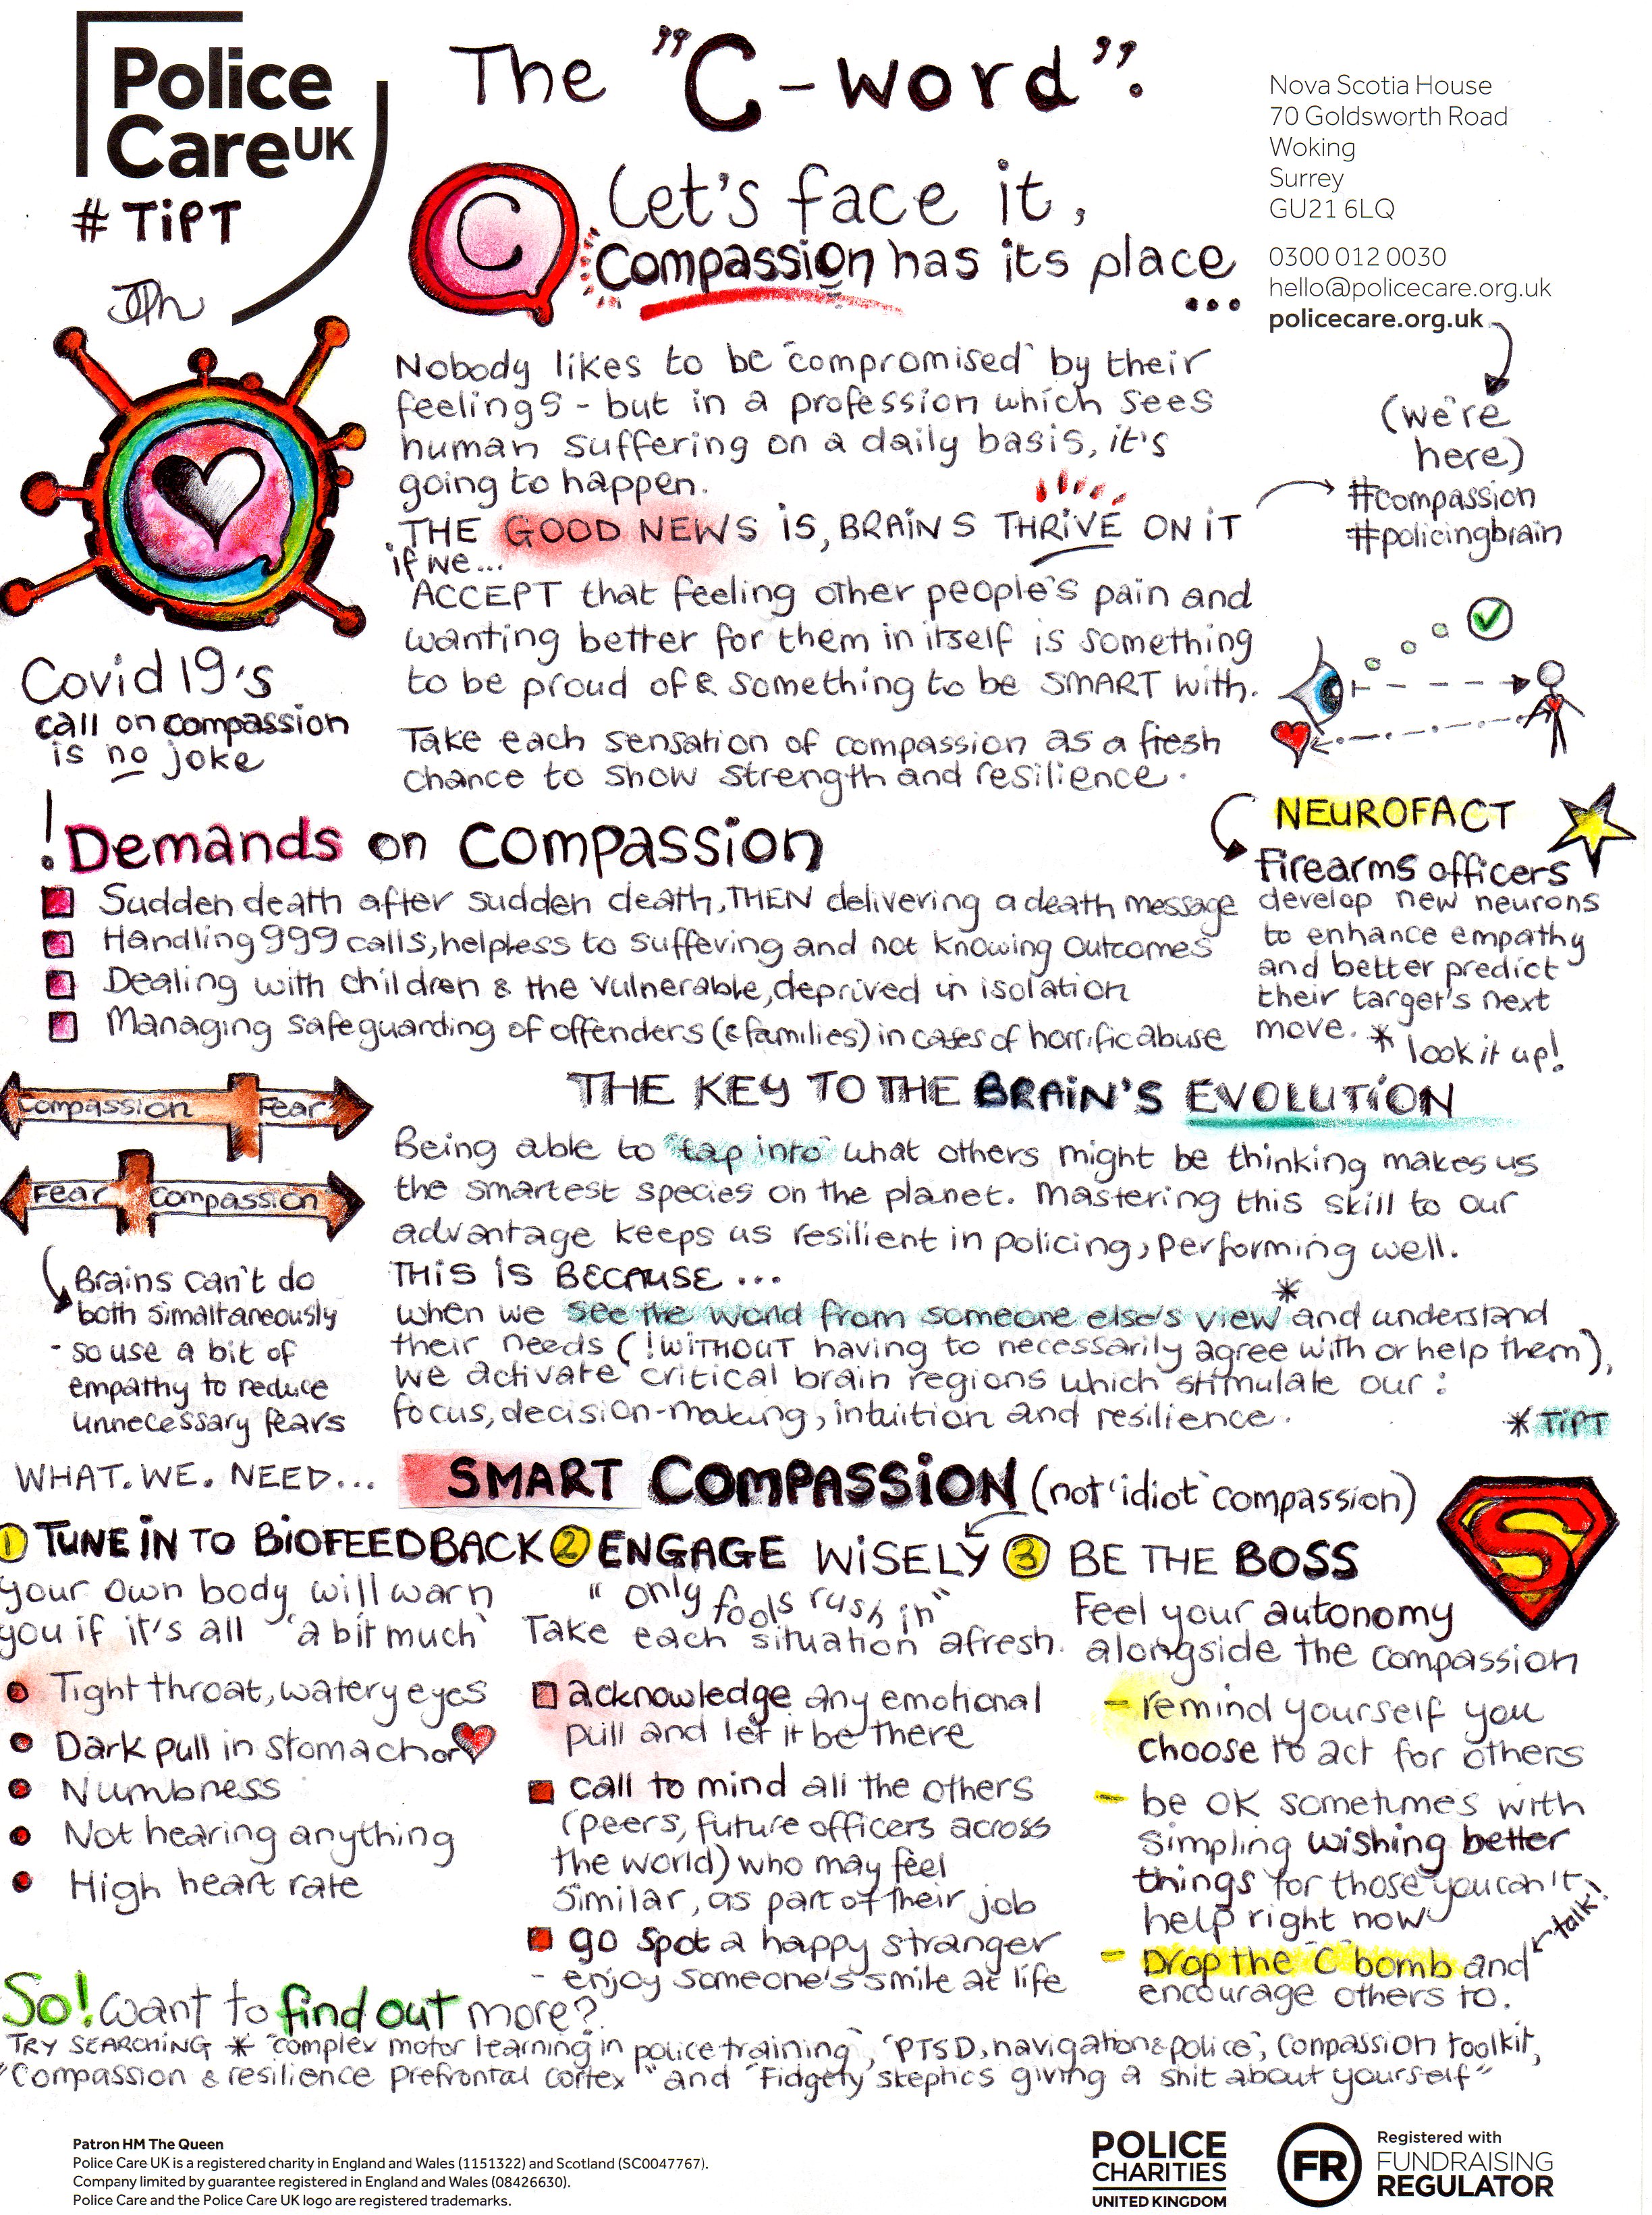 Police
CareUK
# TiPT
The "C-word".
Nova Scotia House
70 Goldsworth Road
Woking
Surrey
GU21 6LQ
0300 012 0030
hello@policecare.org.uk
policecare.org.uk
(we're
here)
#compassion
#policingbrain
C
Let's face it,
Compassion has its place
...
Nobody likes to be 'compromised' by their
feelings - but in a profession which sees
human suffering on a daily basis, it's
going to happen.
THE GOOD NEWS iS, BRAiNS THRiVE ON iT
if we...
ACCEPT that feeling other people's pain and
wanting better for them in itself is something
to be proud of & something to be SMART with.
Take each sensation of compassion as a fresh
chance to show strength and resilience.
Covid 19's
call on compassion
is no joke
! Demands on compassion
Sudden death after sudden death, THEN delivering a death message
Handling 999 calls, helpless to suffering and not knowing outcomes
Dealing with children & the vulnerable, deprived in isolation
Managing safeguarding of offenders (& families) in cases of horrific abuse
NEUROFACT
Firearms officers
develop new neurons
to enhance empathy
and better predict
their target's next
move. * look it up!
Compassion Fear
Fear Compassion
Brains can't do
both simaltaneously
- so use a bit of
empathy to reduce
unnecessary fears
THE KEY TO THE BRAiN'S EVOLUTiON
Being able to "tap into" what others might be thinking makes us
the smartest species on the planet. Mastering this skill to our
advantage keeps us resilient in policing, performing well.
THiS iS BECAUSE ...
when we see the world from someone else's view* and understand
their needs (!WiTHOUT having to necessarily agree with or help them),
we activate critical brain regions which stimulate our:
focus, decision-making, intuition and resilience.
* TiPT
WHAT. WE. NEED... SMART COMPASSiON (not 'idiot' compassion)
S
1 TUNE iN TO BiOFEEDBACK
your own body will warn
you if it's all 'a bit much'
Tight throat, watery eyes
Dark pull in stomach or
Numbness
Not hearing anything
High heart rate
2 ENGAGE WiSELY
"only fools rush in"
Take each situation afresh.
acknowledge any emotional
pull and let it be there
call to mind all the others
(peers, future officers across
the world) who may feel
similar, as part of their job
go spot a happy stranger
- enjoy someone's smile at life
3 BE THE BOSS
Feel your autonomy
alongside the compassion
- remind yourself you
choose to act for others
- be OK sometimes with
simpling wishing better
things for those you can't
help right now
- Drop the "C" bomb and
encourage others to.
talk!
So! want to find out more?
TRY SEARCHiNG * "complex motor learning in police training", 'PTSD, navigation & police', Compassion toolkit,
"Compassion & resilience prefrontal cortex" and "Fidgety skeptics giving a shit about yourself"
Patron HM The Queen
Police Care UK is a registered charity in England and Wales (1151322) and Scotland (SC0047767).
Company limited by guarantee registered in England and Wales (08426630).
Police Care and the Police Care UK logo are registered trademarks.
POLICE
CHARITIES
UNITED KINGDOM
FR
Registered with
FUNDRAISING
REGULATOR